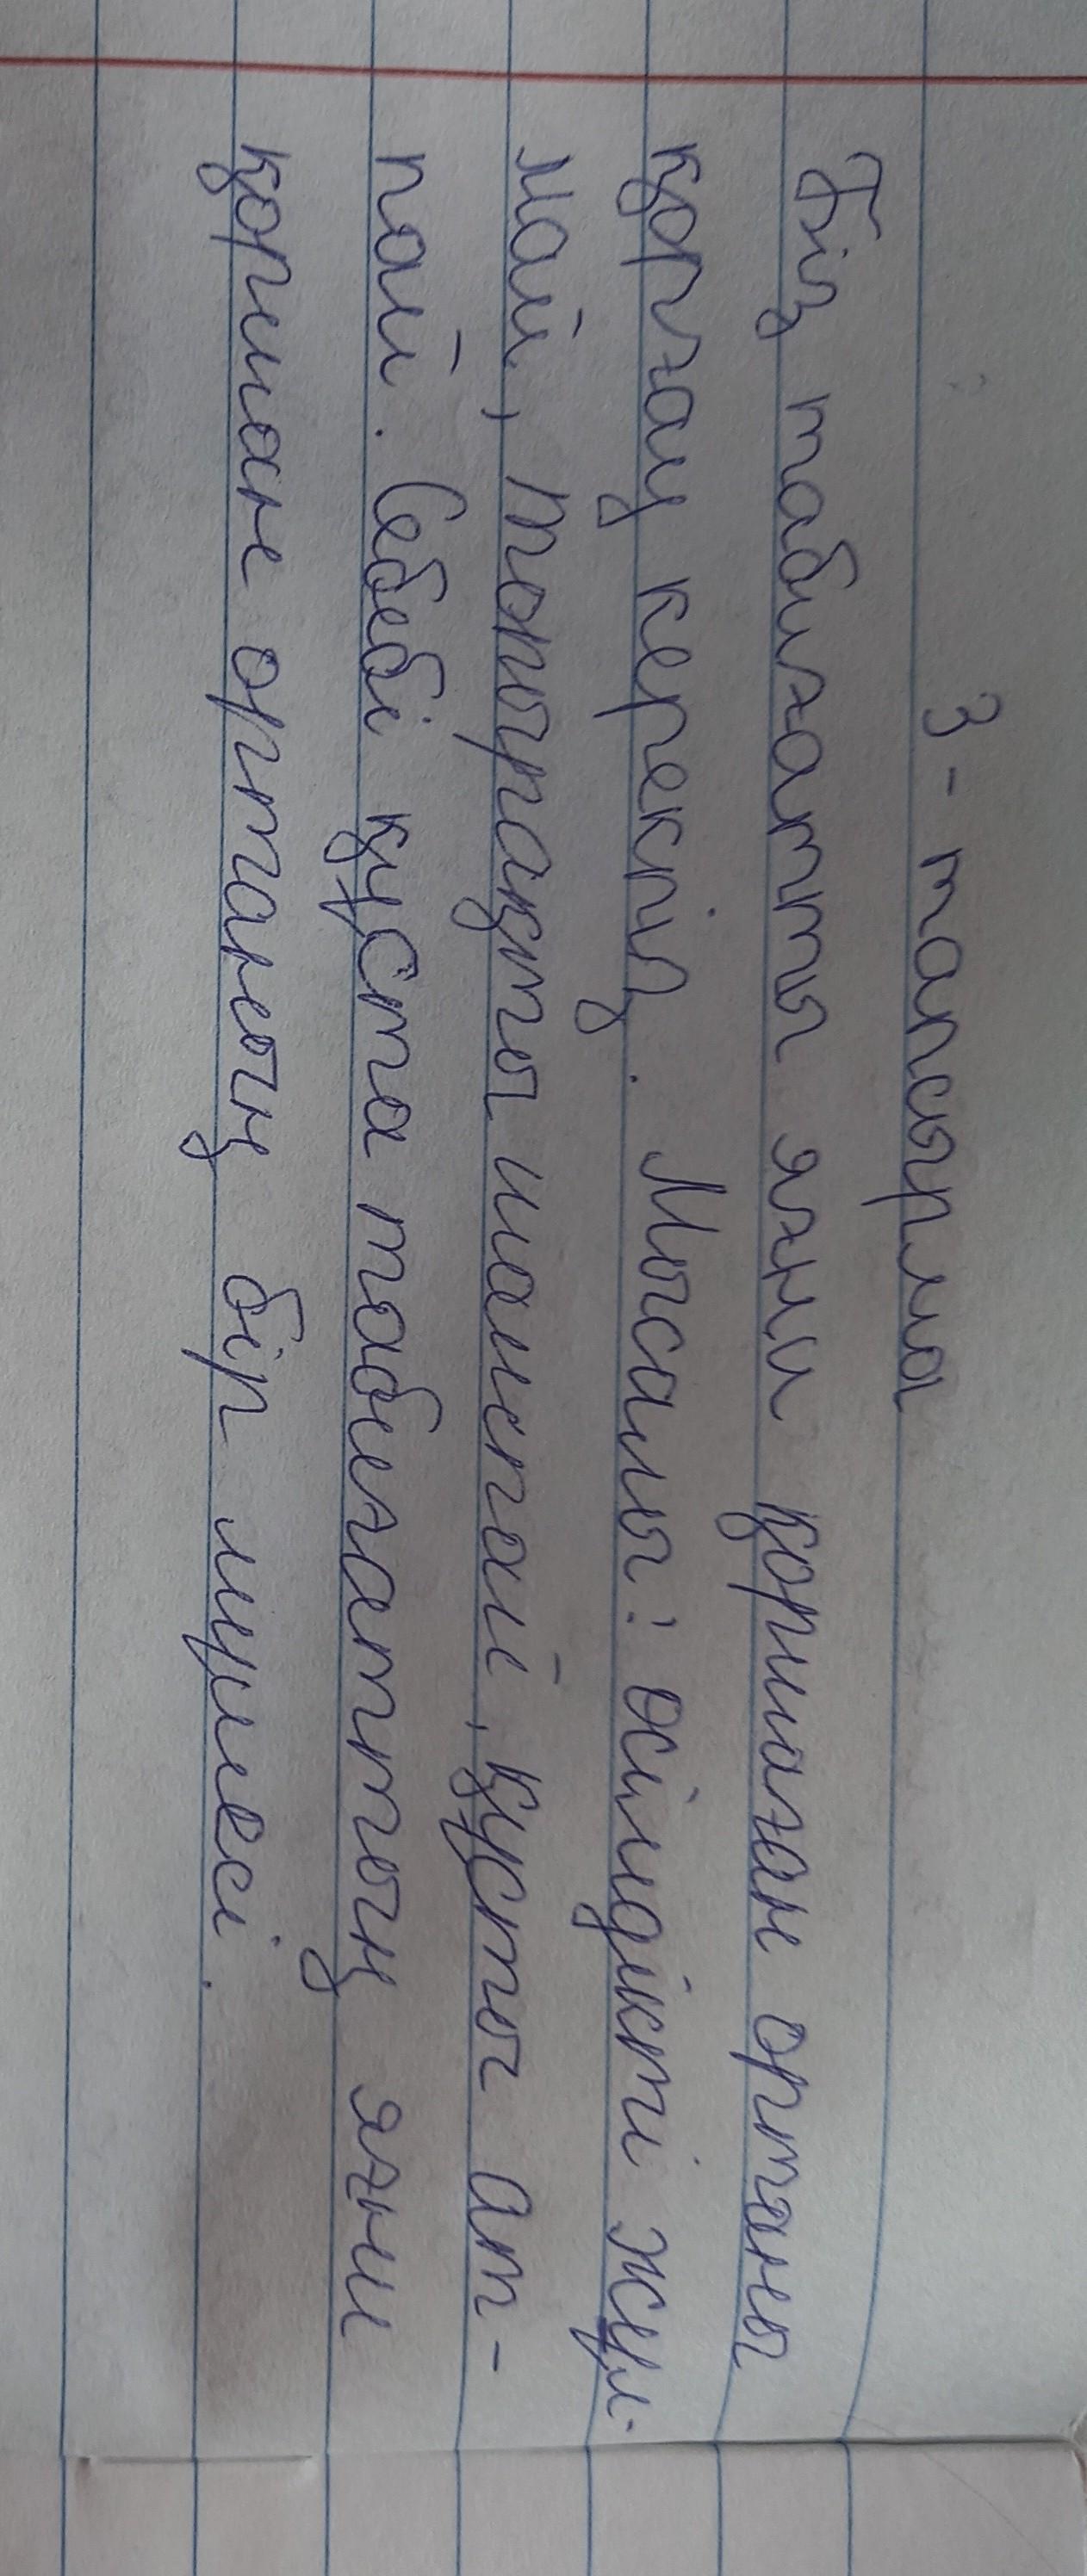 3 - тапсырма
Біз табиғатты яғни қоршаған ортаны
қорғау керекпіз. Мысалы: өсімдікті жұл-
май, топырақты шашпай, құсты ат-
пай. Себебі құста табиғаттың яғни
қоршаған ортаның бір мүшесі.